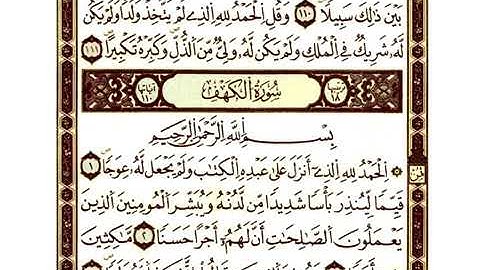 بَيْنَ ذَٰلِكَ سَبِيلًا ١١٠ وَقُلِ اِ۬لْحَمْدُ لِلهِ اِ۬لذِے لَمْ يَتَّخِذْ وَلَدًا وَلَمْ يَكُن
لَّهُۥ شَرِيكٌ فِے اِ۬لْمُلْكِ وَلَمْ يَكُن لَّهُۥ وَلِيٌّ مِّنَ اَ۬لذُّلِّ وَكَبِّرْهُ تَكْبِيرًا ١١١
ترتيبها ١٨ سُورَةُ اُ۬لْكَهْفِ آياتها ١١٠
بِسْمِ اِ۬للَّهِ اِ۬لرَّحْمَٰنِ اِ۬لرَّحِيمِ
اِ۬لْحَمْدُ لِلهِ اِ۬لذِےٓ أَنزَلَ عَلَىٰ عَبْدِهِ اِ۬لْكِتَٰبَ وَلَمْ يَجْعَل لَّهُۥ عِوَجًا ١
قَيِّمًا لِّيُنذِرَ بَأْسًا شَدِيدًا مِّن لَّدُنْهُ وَيُبَشِّرَ اَ۬لْمُومِنِينَ اَ۬لذِينَ
يَعْمَلُونَ اَ۬لصَّٰلِحَٰتِ أَنَّ لَهُمُۥٓ أَجْرًا حَسَنًا ٢ مَّٰكِثِينَ